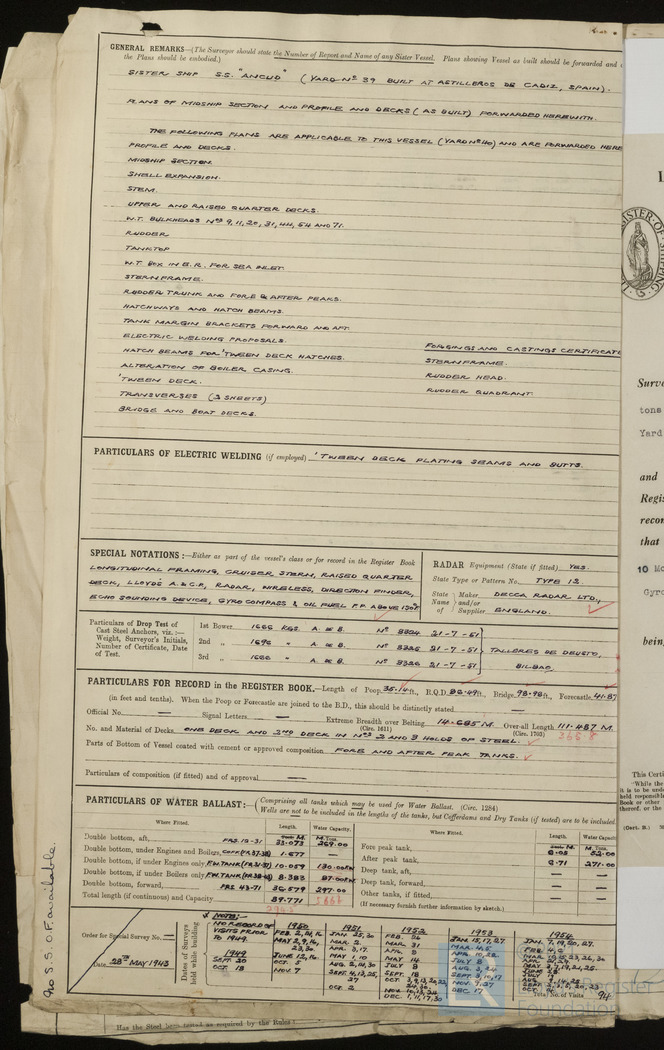 GENERAL REMARKS—(The Surveyor should state the Number of Report and Name of any Sister Vessel. Plans showing Vessel as built should be forwarded and
the Plans should be embodied.)
SISTER SHIP S.S. "ANCUD" (YARD Nº 39 BUILT AT ASTILLEROS DE CADIZ, SPAIN).
PLANS OF MIDSHIP SECTION AND PROFILE AND DECKS (AS BUILT) FORWARDED HEREWITH.
THE FOLLOWING PLANS ARE APPLICABLE TO THIS VESSEL (YARD Nº 40) AND ARE FORWARDED HERE
PROFILE AND DECKS.
MIDSHIP SECTION.
SHELL EXPANSION.
STEM.
UPPER AND RAISED QUARTER DECKS.
W.T. BULKHEADS Nos 9, 11, 20, 31, 44, 54 AND 71.
RUDDER
TANKTOP
W.T. BOX IN E.R. FOR SEA INLET.
STERNFRAME.
RUDDER TRUNK AND FORE & AFTER PEAKS.
HATCHWAYS AND HATCH BEAMS.
TANK MARGIN BRACKETS FORWARD AND AFT.
ELECTRIC WELDING PROPOSALS.
FORGINGS AND CASTINGS CERTIFICATE
HATCH BEAMS FOR 'TWEEN DECK HATCHES.
STERNFRAME.
ALTERATION OF BOILER CASING.
RUDDER HEAD.
'TWEEN DECK.
RUDDER QUADRANT.
TRANSVERSES (3 SHEETS)
BRIDGE AND BOAT DECKS.
PARTICULARS OF ELECTRIC WELDING (if employed) 'TWEEN DECK PLATING SEAMS AND BUTTS.
SPECIAL NOTATIONS:—Either as part of the vessel's class or for record in the Register Book
LONGITUDINAL FRAMING, CRUISER STERN, RAISED QUARTER
DECK, LLOYD'S A. & C.P., RADAR, WIRELESS, DIRECTION FINDER,
ECHO SOUNDING DEVICE, GYRO COMPASS & OIL FUEL F.P. ABOVE 150°F
RADAR Equipment (State if fitted) YES.
State Type or Pattern No. TYPE 12.
State Name of Maker and/or Supplier DECCA RADAR LTD.,
ENGLAND.
Particulars of Drop Test of
Cast Steel Anchors, viz.:—
Weight, Surveyor's Initials,
Number of Certificate, Date
of Test.
1st Bower 1686 KGS. A. de B. Nº 8324 21-7-51
2nd " 1696 " A. de B. Nº 8325 21-7-51
3rd " 1686 " A. de B. Nº 8326 21-7-51
TALLERES DE DEUSTO,
BILBAO.
PARTICULARS FOR RECORD in the REGISTER BOOK.—Length of Poop 35·14 ft., R.Q.D. 86·49 ft., Bridge 98·98 ft., Forecastle 41·87
(in feet and tenths). When the Poop or Forecastle are joined to the B.D., this should be distinctly stated —
Official No. — Signal Letters — Extreme Breadth over Belting 14·685 M. Over-all Length 111·487 M.
(Circ. 1611) (Circ. 1703) 365·8
No. and Material of Decks ONE DECK AND 2ND DECK IN Nos 2 AND 3 HOLDS OF STEEL.
Parts of Bottom of Vessel coated with cement or approved composition FORE AND AFTER PEAK TANKS.
Particulars of composition (if fitted) and of approval —
PARTICULARS OF WATER BALLAST:— (Comprising all tanks which may be used for Water Ballast. (Circ. 1284)
Wells are not to be included in the lengths of the tanks, but Cofferdams and Dry Tanks (if tested) are to be included
Where Fitted. Length. Water Capacity. Where Fitted. Length. Water Capacity
M. M. Tons. M. M. Tons.
Double bottom, aft, FRS 12-31 33·073 269·00
Double bottom, under Engines and Boilers, 1·677 —
Double bottom, if under Engines only F.W. TANK 10·059 130·00 F.W.
Double bottom, if under Boilers only F.W. TANK 8·383 87·00 F.W.
Double bottom, forward, FRS 43-71 36·579 297·00
Total length (if continuous) and Capacity 89·771
Fore peak tank, 6·05 52·00
After peak tank, 9·71 271·00
Deep tank, aft, — —
Deep tank, forward, — —
Other tanks, if fitted, — —
(If necessary furnish further information by sketch.)
No S.S. O.F. available
Order for Special Survey No. —
Date 28th MAY 1943
Dates of Surveys
held while building
NOTE:-
NO RECORD OF
VISITS PRIOR
TO 1949.
1949
SEPT. 30
OCT. 18
1950
FEB. 2, 14, 16
MAY 2, 9, 16,
23, 26
JUNE 12, 16
OCT. 5
NOV. 7
1951
JAN. 25, 30
MAR. 2
APR. 3, 17.
MAY 1, 10
AUG. 2, 14, 30
SEPT. 4, 13, 25,
27
OCT. 2
1952
FEB. 26
MAR. 31
APR. 9
MAY 14
JULY 8
SEPT. 18
DEC. 1, 11, 17, 30
1953
JAN. 13, 17, 27
MAR. 4, 5
APR. 10, 22
JULY 8
AUG. 3, 24
NOV. 7, 27
DEC. 17
1954
JAN. 7, 19, 20, 27.
FEB. 4, 6
Total No. of Visits 94
Has the Steel been tested as required by the Rules?
Surve
tons
Yard
and
Regis
recor
that
10 Mo
Gyro
being
This Certi
"While the
it is to be und
held responsible
Book or other
thereof, or the
(Cert. B.)
Register
Foundation